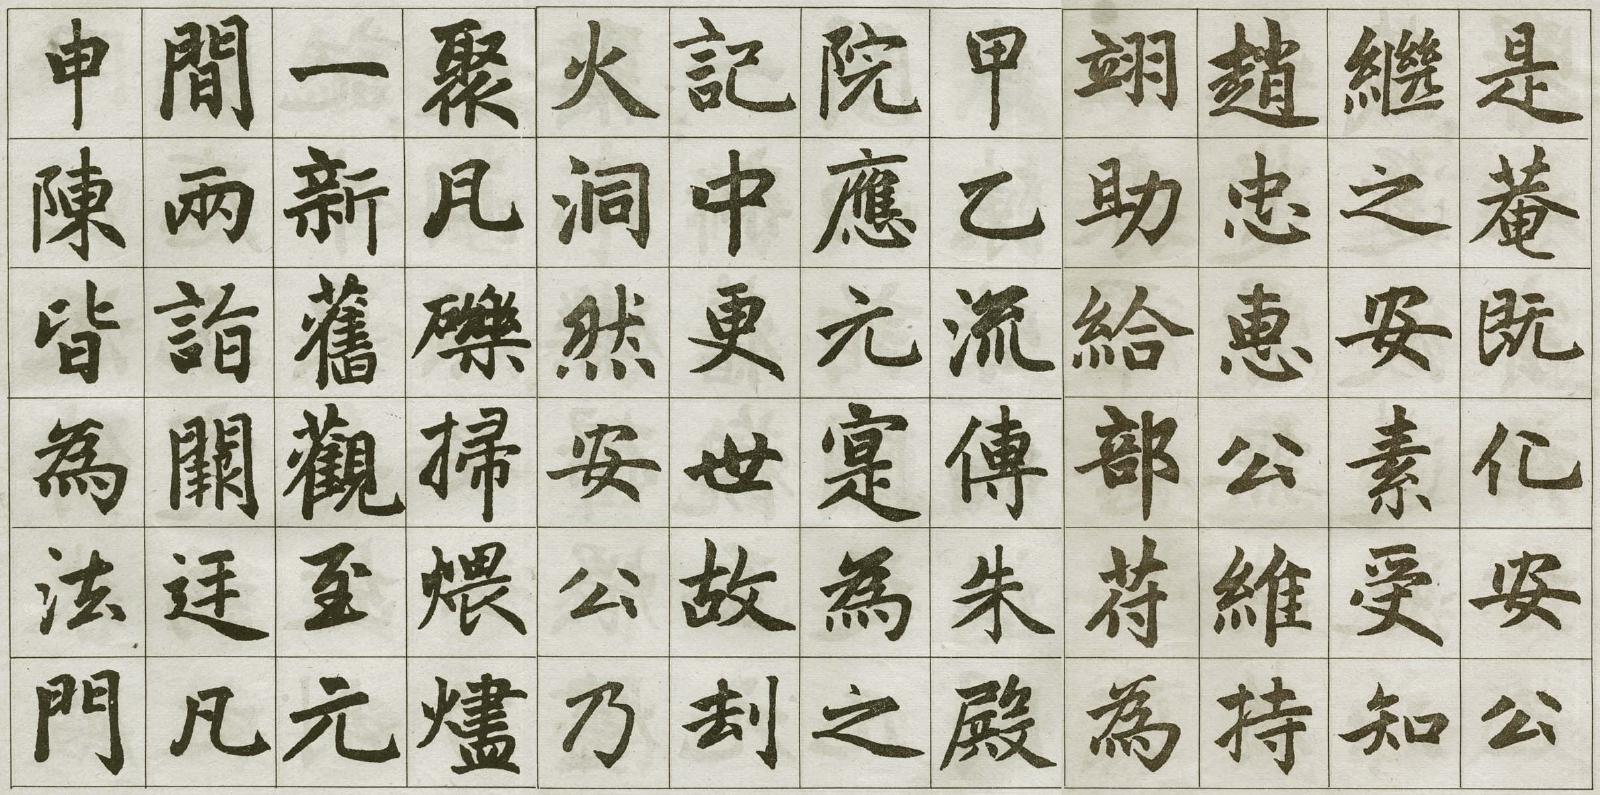 是菴既化安公
繼之安素受知
趙忠惠公維持
翊助給部苻為
甲乙流傳朱殿
院應元寔為之
記中更世故刦
火洞然安公乃
聚凡礫掃煨燼
一新舊觀至元
間兩詣闕廷凡
申陳皆為法門